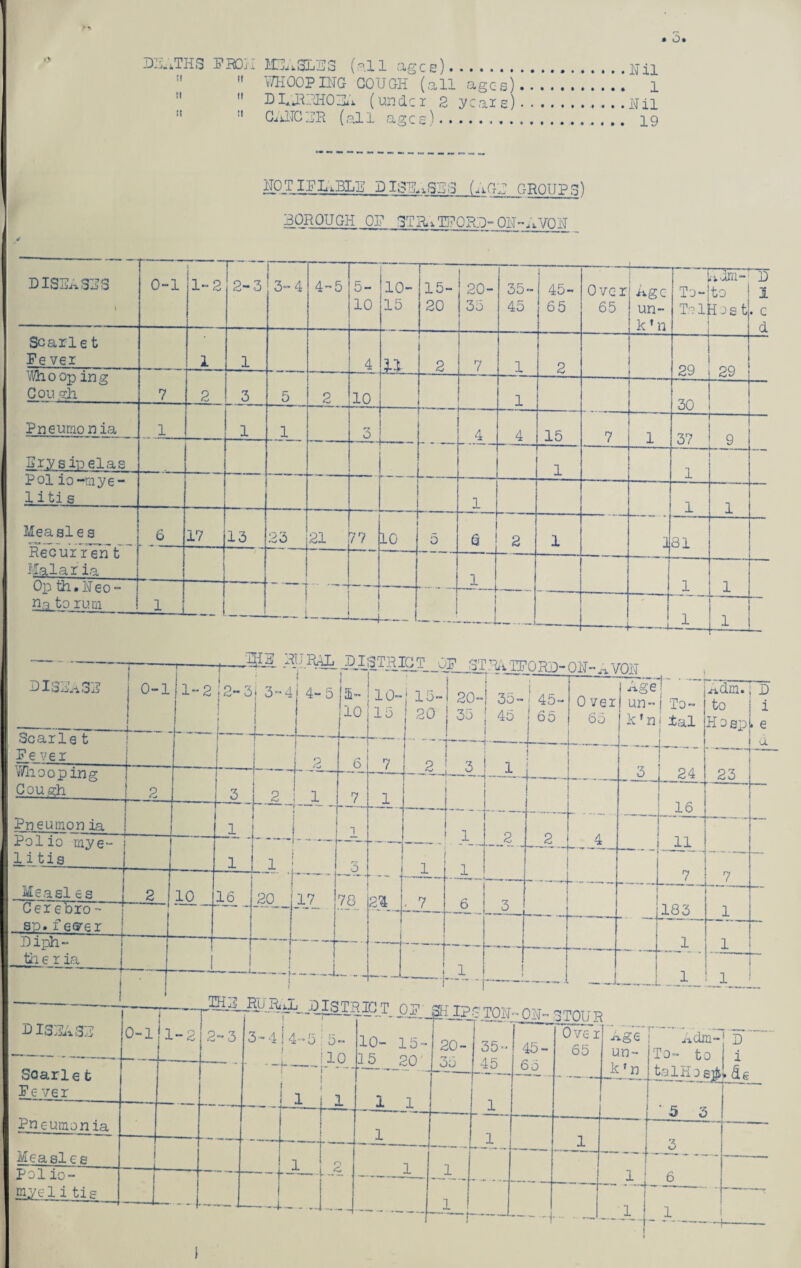 . 3.
DEATHS FROM MEASLES (all ages)...................Nil
" " WHOOPING COUGH (all ages)............ 1
" " DIARRHOEA (under 2 years)............Nil
" " CANCER (all ages)..................... 19
NOTIFIABLE DISEASES (AGE GROUPS)
BOROUGH OF STRATFORD-ON-AVON
DISEASES 0-1 1-2 2-3 3-4 4-5 5-10 10-15 15-20 20-35 35-45 45-65 Over 65 Age un-k'n To-Tal Adm-to Host. Dicd
Scarlet Fever 1 1 4 11 2 7 1 2 29 29
Whooping Cough 7 2 3 5 2 10 1 30
Pneumonia 1 1 1 3 4 4 15 7 1 37 9
Erysipelas 1 1
Polio-mye-litis 1 1 1
Measles 6 17 13 23 21 77 10 5 6 2 1 181
Recurrent Malaria 1 1 1
Opth.Neo-natorum 1 1 1
THE RURAL DISTRICT OF STRATFORD-ON-AVON
DISEASE 0-1 1-2 2-3 3-4 4-5 5-10 10-15 15-20 20-35 35-45 45-65 Over 65 Age un-k'n To-tal Adm. to Hosp. Died
Scarlet Fever 2 6 7 2 3 1 3 24 23
Whooping Cough 2 3 2 1 7 1 16
Pneumonia 1 1 1 2 2 4 11
Polio mye-litis 1 1 3 1 1 7 7
Measles 2 10 16 20 17 78 24 7 6 3 183 1
Cerebro-sp. fever 1 1
Diph-theria 1 1 1
THE RURAL DISTRICT OF SHIPSTON-ON-STOUR
DISEASE 0-1 1-2 2-3 3-4 4-5 5-10 10-15 15-20 20-35 35-45 45-65 Over 65 Age un-k'n To-tal Adm-to Hosp. Die
Scarlet Fever 1 1 1 1 1 5 3
Pneumonia 1 1 1 3
Measles 1 2 1 1 1 6
Polio-myelitis 1 1 1